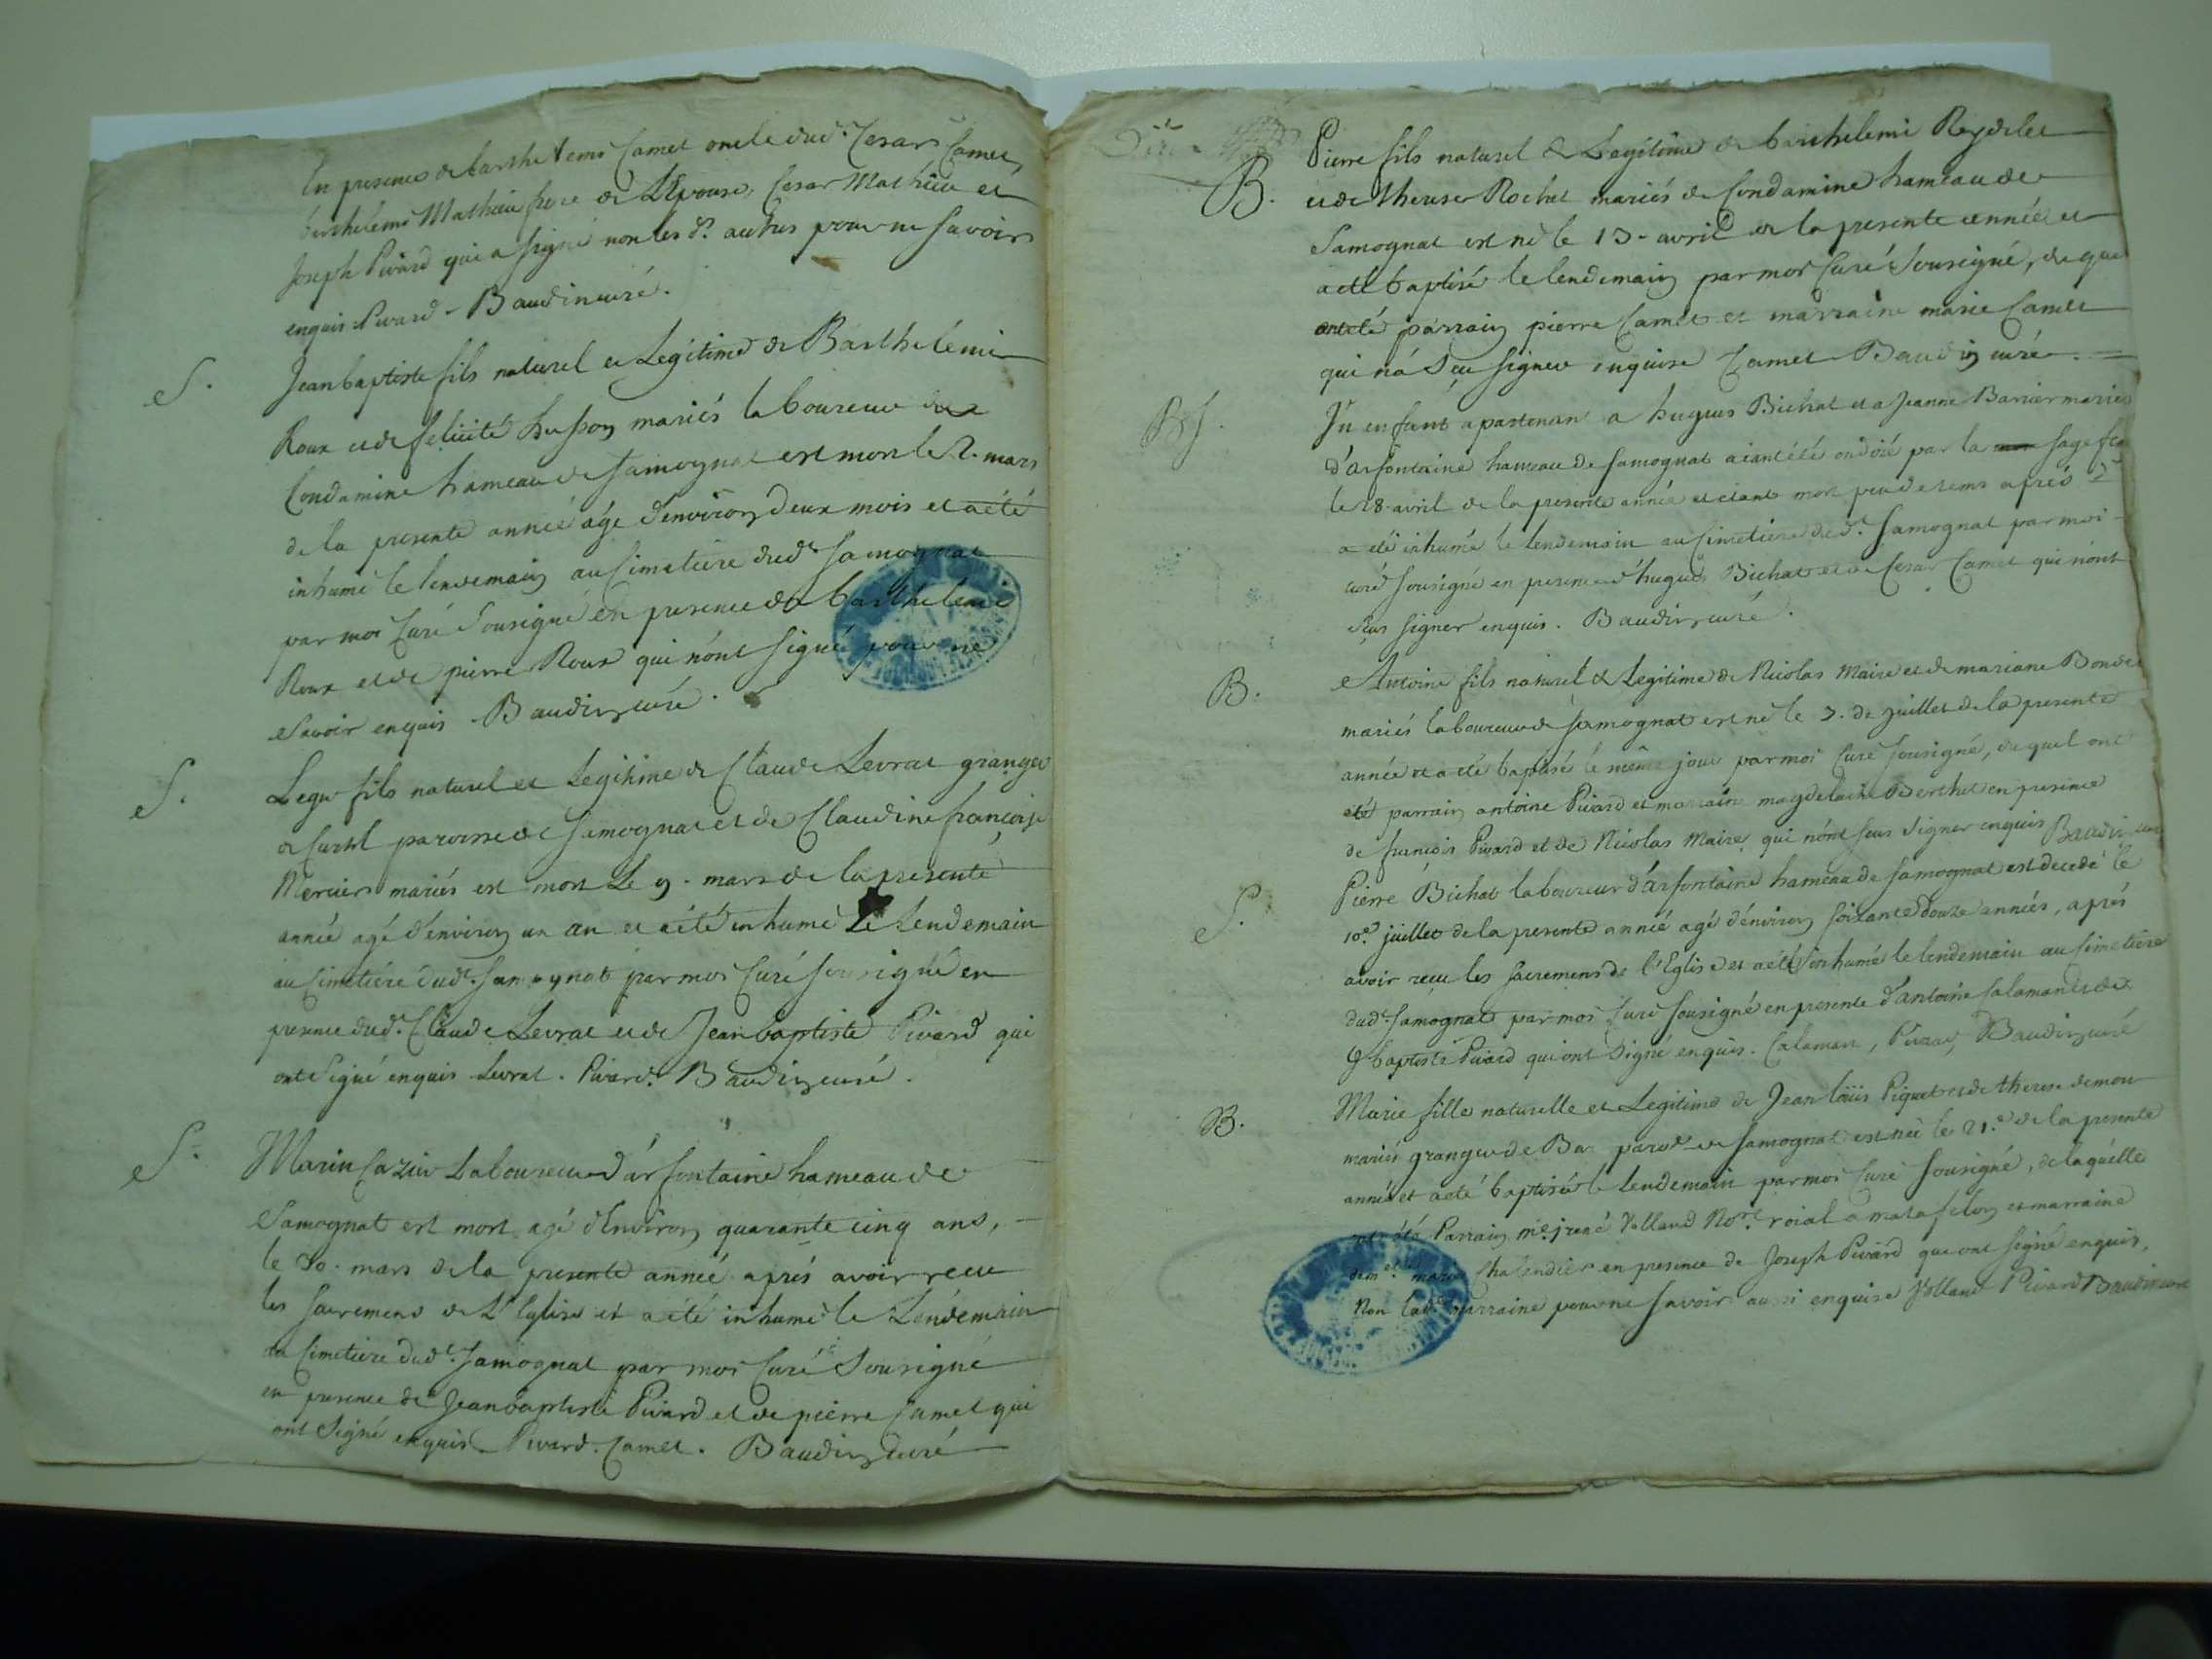 En presence de barthelemi Camet oncle dud.t Cesar Camet,
berthelemi Mathieu frere de L'Epouse, Cesar Mathieu et
Joseph Pivard qui a signé non les d.s autres pour ne savoir
enquis Pivard - Baudin curé.
S.
Jean baptiste fils naturel et Legitime de Barthelemi
Roux et de felicité husson mariés laboureur de
Condamine hameau de Samognat est mort le 2. mars
de la presente année agé d'environ deux mois et a été
inhumé le lendemain au Cimetiere dud.t Samognat
par moi Curé Sousigné en presence de barthelemi
Roux et de pierre Roux qui n'ont signé pour ne
savoir enquis Baudin curé.
S.
Leger fils naturel et Legitime de Claude Levrat granger
a paroisse de Samognat et de Claudine françoise
Mercier mariés est mort Le 9. mars de la presente
année agé d'environ un an et a été inhumé Le Lendemain
au Cimetiére dud.t Samognat par moi Curé sousigné en
presence dud.t Claude Levrat et de Jean baptiste Pivard qui
ont Signé enquis Levrat. Pivard. Baudin curé.
S.
Marin Cazier Laboureur d'arfontaine hameau de
Samognat est mort agé d'Environ quarante cinq ans,
le 30. mars de la presente année aprés avoir recu
les sacremens de L'Eglise et a été inhumé le Lendemain
au Cimetiere dud.t Samognat par moi Curé Sousigné
en presence de Jean baptiste Pivard et de pierre Camet qui
ont Signé enquis Pivard. Camet. Baudin Curé
B.
Pierre fils naturel & Legitime de barthelemi Reydelet
et de therese Rochet mariés de Condamine hameau de
Samognat est né le 13. avril de la presente année et
a été baptisé le lendemain par moi Curé Sousigné, du quel
ont été parrain pierre Camet et marraine marie Camet
qui n'a Sçu signer enquise Camet Baudin curé.
B S.
Un enfant apartenant a hugues Bichat et a Jeanne Barrier mariés
d'arfontaine hameau de Samognat aiant été ondoié par la sage fe
le 28. avril de la presente année et etant mort peu de tems aprés
a été inhumé le lendemain au Cimetiere dud.t Samognat par moi
curé sousigné en presence d'hugues Bichat et de Cesar Camet qui n'ont
sçus signer enquis. Baudin curé.
B.
Antoine fils naturel & Legitime de Nicolas Maire et de mariane Bondet
mariés laboureur de Samognat est né le 3. de juillet de la presente
année et a été baptisé le même jour par moi Curé sousigné, du quel ont
été parrain antoine Pivard et marraine magdelaine Berthet en presence
de francois Pivard et de Nicolas Maire qui n'ont sçus signer enquis Baudin curé
S.
Pierre Bichat laboureur d'arfontaine hameau de Samognat est decedé le
10.e juillet de la presente année agé d'environ soixante douze années, aprés
avoir reçu les sacremens de l'Eglise et a été inhumé le lendemain au Cimetiere
dud.t Samognat par moi Curé sousigné en presence d'antoine Calamand et de
J baptiste Pivard qui ont Signé enquis. Calaman, Pivard, Baudin curé
B.
Marie fille naturelle et Legitime de Jean louis Piquet et de therese demon
mariés granger de Ba parois de Samognat est née le 21.e de la presente
année et a été baptisée le lendemain par moi Curé sousigné, de laquelle
ont été Parrain m.e Volland No.re roial a matafelon et marraine
dem.elle marie en presence de Joseph Pivard qui ont signé enquis,
Non lad.e marraine pour ne savoir aussi enquise Volland Pivard Baudin curé